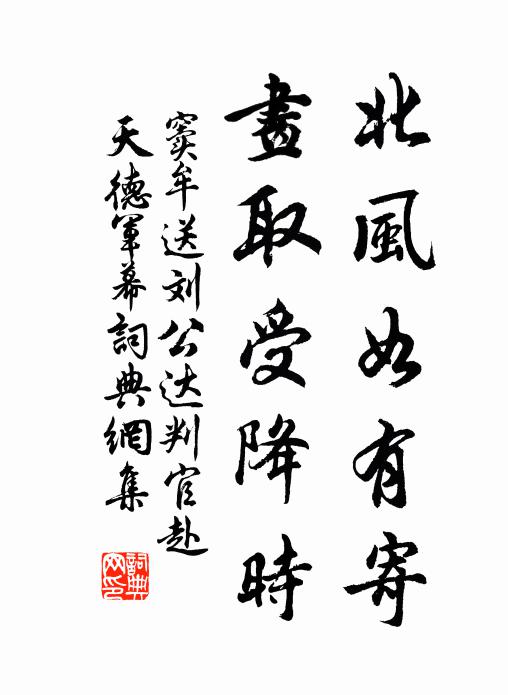 北風如有寄
畫取受降時
窦牟送刘公达判官赴
天德軍幕詞典網集
詞典
网印